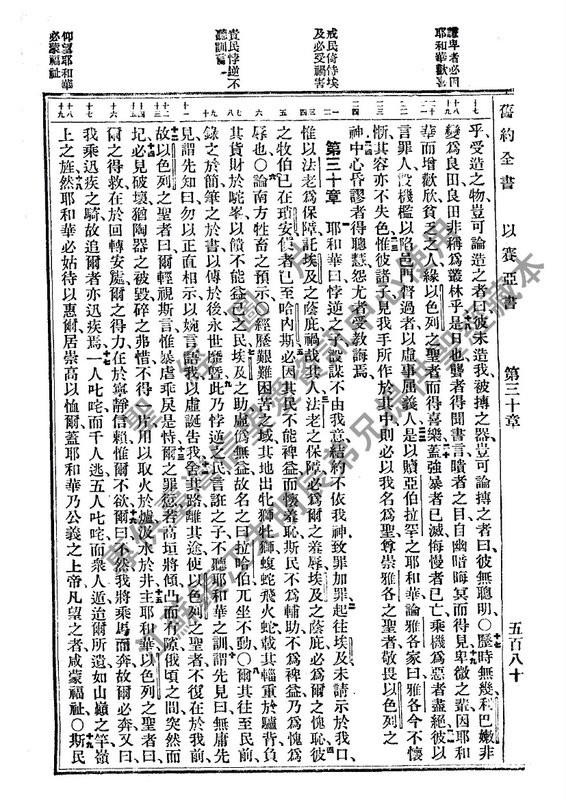 舊約全書　以賽亞書　第三十章　五百八十
謙卑者必因耶和華歡欣
戒民倚恃埃及必受禍害
責民悖逆不聽訓誨
仰望耶和華必蒙福祉
乎受造之物豈可論造之者曰彼未造我被摶之器豈可論摶之者曰彼無聰明〇歷時無幾利巴嫩非
變爲良田良田非稱爲叢林乎是日也聾者得聞書言瞶者之目自幽暗晦冥而得見卑微之輩因耶和
華而增歡欣貧乏之人緣以色列之聖者而得喜樂蓋強暴者已滅侮慢者已亡乘機爲惡者盡絕彼以
言罪人設機檻以陷邑門督過者以虛事屈義人是以贖亞伯拉罕之耶和華論雅各家曰雅各今不懷
慚其容亦不失色惟彼諸子見我手所作於其中則必以我名爲聖尊崇雅各之聖者敬畏以色列之
神中心昏謬者得聰慧怨尤者受教誨焉
第三十章　耶和華曰悖逆之子設謀不由我意結約不依我神致罪加罪起往埃及未請示於我口
惟以法老爲保障託埃及之蔭庇禍哉其人法老之保障必爲爾之羞辱埃及之蔭庇必爲爾之愧恥彼
之牧伯已在瑣安使者已至哈內斯必因其民不能裨益而懷羞恥斯民不爲輔助不爲裨益乃爲愧爲
辱也〇論南方牲畜之預示〇經歷艱難困苦之域其地出牝獅牡獅蝮蛇飛火蛇載其輜重於驢背負
其貨財於駝峯以饋不能益己之民埃及之助虛爲無益故名之曰拉哈伯兀坐不動〇爾其往至民前
錄之於簡筆之於書以傳於後永世靡曁此乃悖逆之民言誑之子不聽耶和華之訓謂先見曰無庸先
見謂先知曰勿以正直相示以婉言語我以虛誕告我舍其路離其途使以色列之聖者不復在於我前
故以色列之聖者曰爾輕視斯言惟暴虐乖戾是恃爾之罪愆若高垣將傾凸而有隙俄頃之間突然而
圮必見破壞猶陶器之被毀碎之弗惜不得一片用以取火於爐汲水於井主耶和華以色列之聖者曰
爾之得救在於回轉安處爾之得力在於寧靜信賴惟爾不欲爾曰不然我將乘馬而奔故爾必奔又曰
我乘迅疾之騎故追爾者亦迅疾焉一人叱咤而千人逃五人叱咤而衆人遁迨爾所遺如山巔之竿嶺
上之旌然耶和華必姑待以惠爾居崇高以恤爾蓋耶和華乃公義之上帝凡望之者咸蒙福祉〇斯民